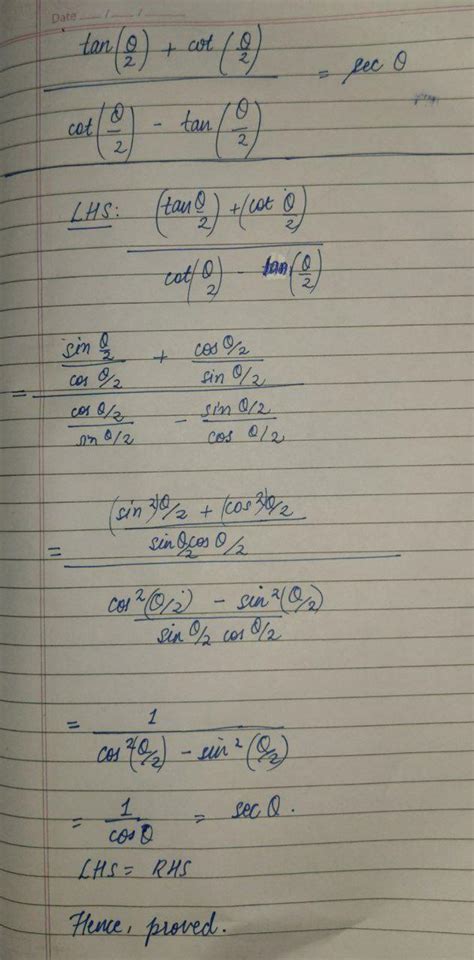 Date / /
tan(θ/2) + cot(θ/2)
cot(θ/2) - tan(θ/2)
= sec θ
LHS: (tan θ/2) + (cot θ/2)
cot(θ/2) - tan(θ/2)
= sin θ/2 / cos θ/2 + cos θ/2 / sin θ/2
cos θ/2 / sin θ/2 - sin θ/2 / cos θ/2
= (sin²)θ/2 + (cos²)θ/2
sin θ/2 cos θ/2
cos²(θ/2) - sin²(θ/2)
sin θ/2 cos θ/2
= 1
cos²(θ/2) - sin²(θ/2)
= 1 / cos θ = sec θ.
LHS = RHS
Hence, proved.